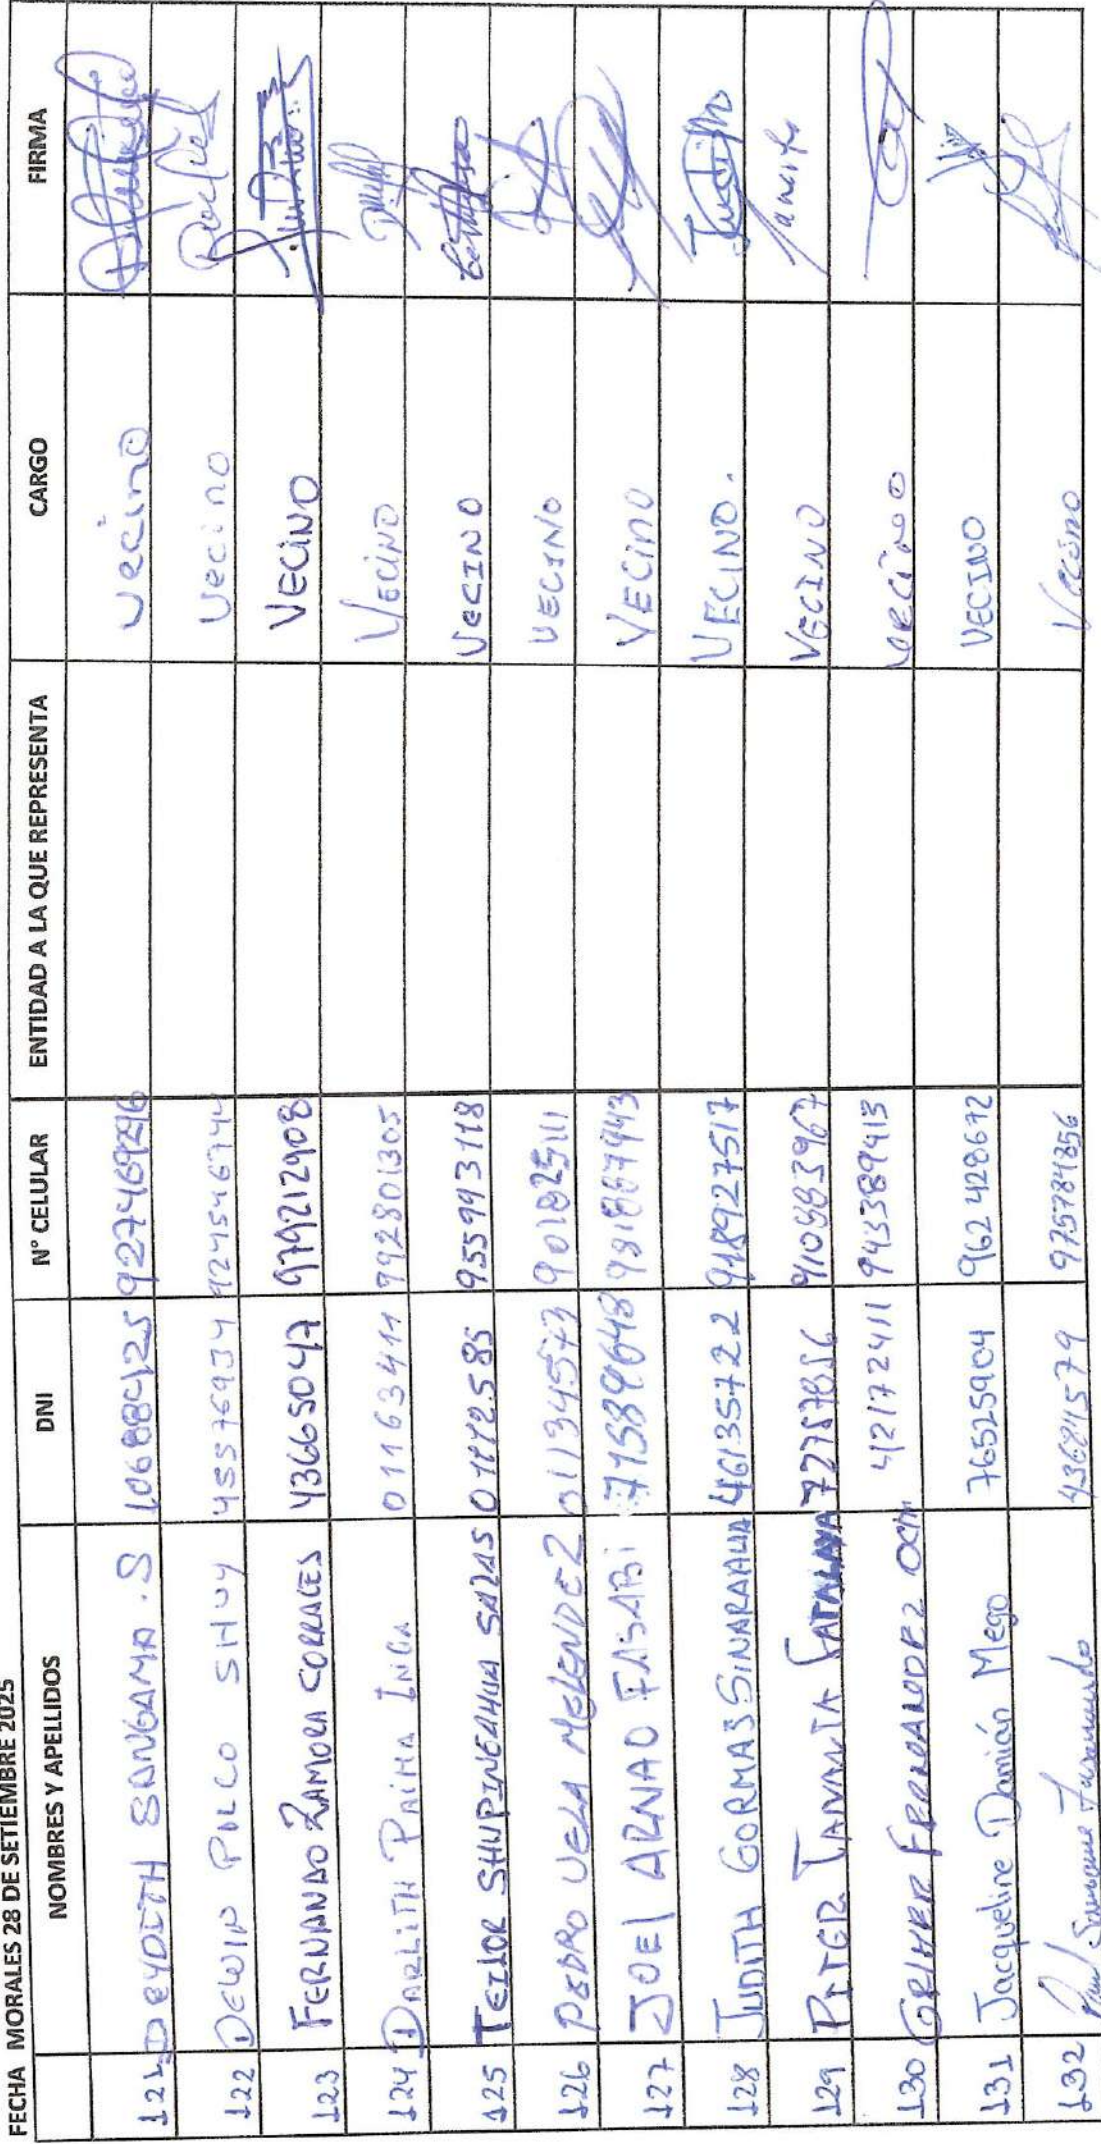 FECHA MORALES 28 DE SETIEMBRE 2025
NOMBRES Y APELLIDOS DNI N° CELULAR ENTIDAD A LA QUE REPRESENTA CARGO FIRMA
121 DEYDITH SANGAMA .S 927469296 vecino
122 DEWIN PILCO SHUY 45576934 vecino
123 FERNANDO ZAMORA CORRALES 43665047 979212908 VECINO
124 DARLITH PAIMA INGA 01163411 992801305 VECINO
125 TEILOR SHUPINGAHUA SALAS 955993118 VECINO
126 PEDRO VELA MELENDEZ 01134573 VECINO
127 JOEL ARNAO FASABI 71589648 981867943 VECINO
128 JUDITH GORMAS SINARAHUA 46135722 918927517 VECINO.
129 PITER TANANTA SATALAYA VECINO
130 FERNANDEZ 42172411 943389413 vecino
131 Jacqueline Damián Mego 76525904 962428672 VECINO
132 975784856 Vecino